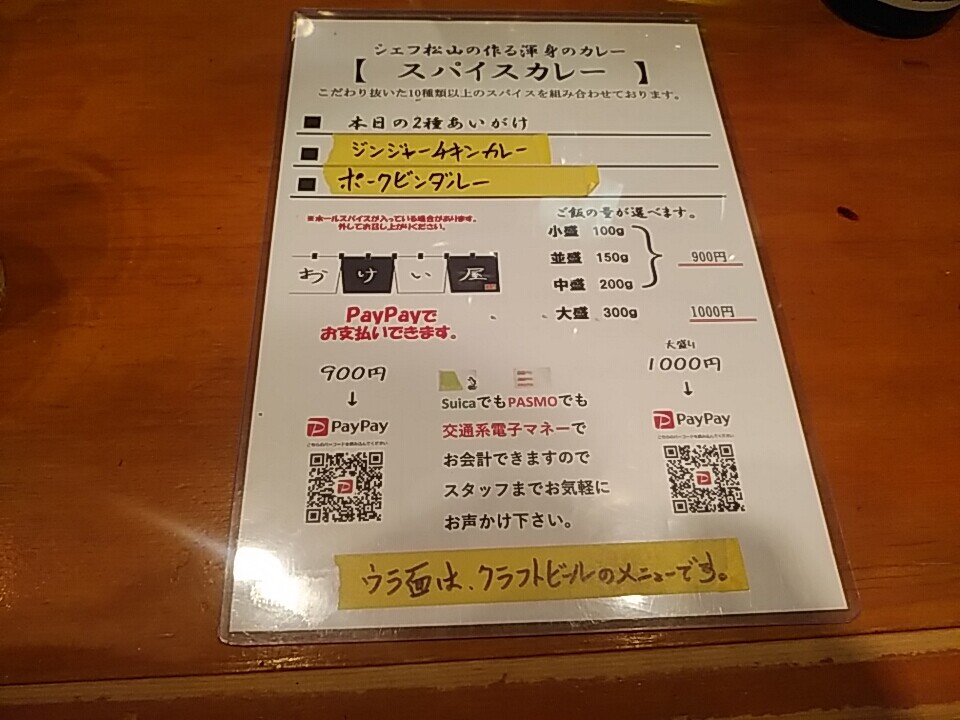 シェフ松山の作る渾身のカレー
【 スパイスカレー 】
こだわり抜いた10種類以上のスパイスを組み合わせております。
■ 本日の2種あいがけ
■ ジンジャーチキンカレー
■ ポークビンダルー
※ホールスパイスが入っている場合があります。
外してお召し上がりください。
おけい屋
PayPayで
お支払いできます。
ご飯の量が選べます。
小盛 100g
並盛 150g
中盛 200g
900円
大盛 300g 1000円
900円
↓
PayPay
こちらのバーコードを読み込んでください
SuicaでもPASMOでも
交通系電子マネーで
お会計できますので
スタッフまでお気軽に
お声かけ下さい。
大盛り
1000円
↓
PayPay
こちらのバーコードを読み込んでください
ウラ面は、クラフトビールのメニューです。